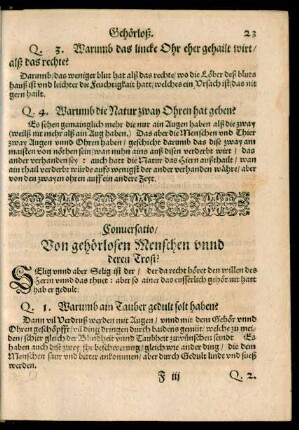 Gehörloß. 23
Q. 3. Warumb das lincke Ohr eher gehailt wirt/
alß das rechte?
Darumb/das weniger blut hat alß das rechte/ wo die Löber deß bluts
hauß ist vnd leichter die Feuchtigkait hatt/welches ein Vrsach ist das nit
gern hailt.
Q. 4. Warumb die Natur zway Ohren hat geben?
Es sehen gemainglich mehr die nur ain Augen haben alß die zway
(weilß nur mehr alß ain Aug haben.) Das aber die Menschen vnd Thier
zway Augen vnnd Ohren haben/ geschicht darumb das dise zway am
maisten von nöthen sein/wan nuhn ains auß disen verderbt wirt/ das
ander verhanden sey: auch hatt die Natur das Hiern außthailt/ wan
ain thail verderbt wurde auffs wenigst der ander verhanden währe/ aber
von den zwayen ohren auff ein andere Zeyt.
Conuersatio/
Von gehörlosen Menschen vnnd
deren Trost?
SElig vnnd aber Selig ist der/ der da recht höret den willen des
Herrn vnnd das thuet: aber so ainer das eusserlich gehör nit hatt
hab er gedult:
Q. 1. Warumb ain Tauber gedult solt haben?
Dann vil Verdruß werden mit Augen/ vnnd mit dem Gehör vnnd
Ohren geschöpfft/vil ding dringen durch baidens gemüt/ welche zu mei-
den/schier gleich der Blindheit vnnd Taubheit zuwünschen seindt. Es
haben auch dise zwey ihr beschwerung/gleich wie ander ding/ die dem
Menschen saur vnd bitter ankommen/ aber durch Gedult lindt vnd sueß
werden.
F iij Q. 2.